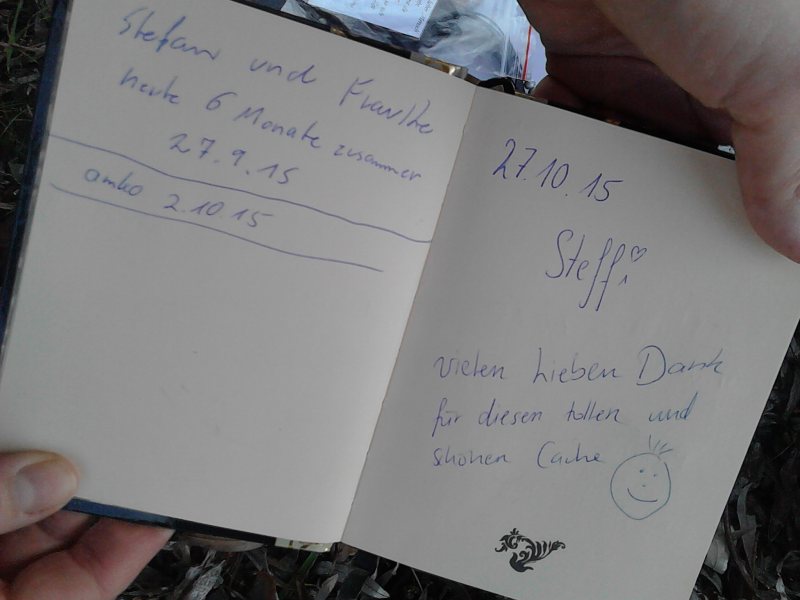 Stefan und
heute 6 Monate zusammen
27.9.15
amko 2.10.15
27.10.15
Steffi
vielen Lieben Dank
für diesen tollen und
shönen Cache